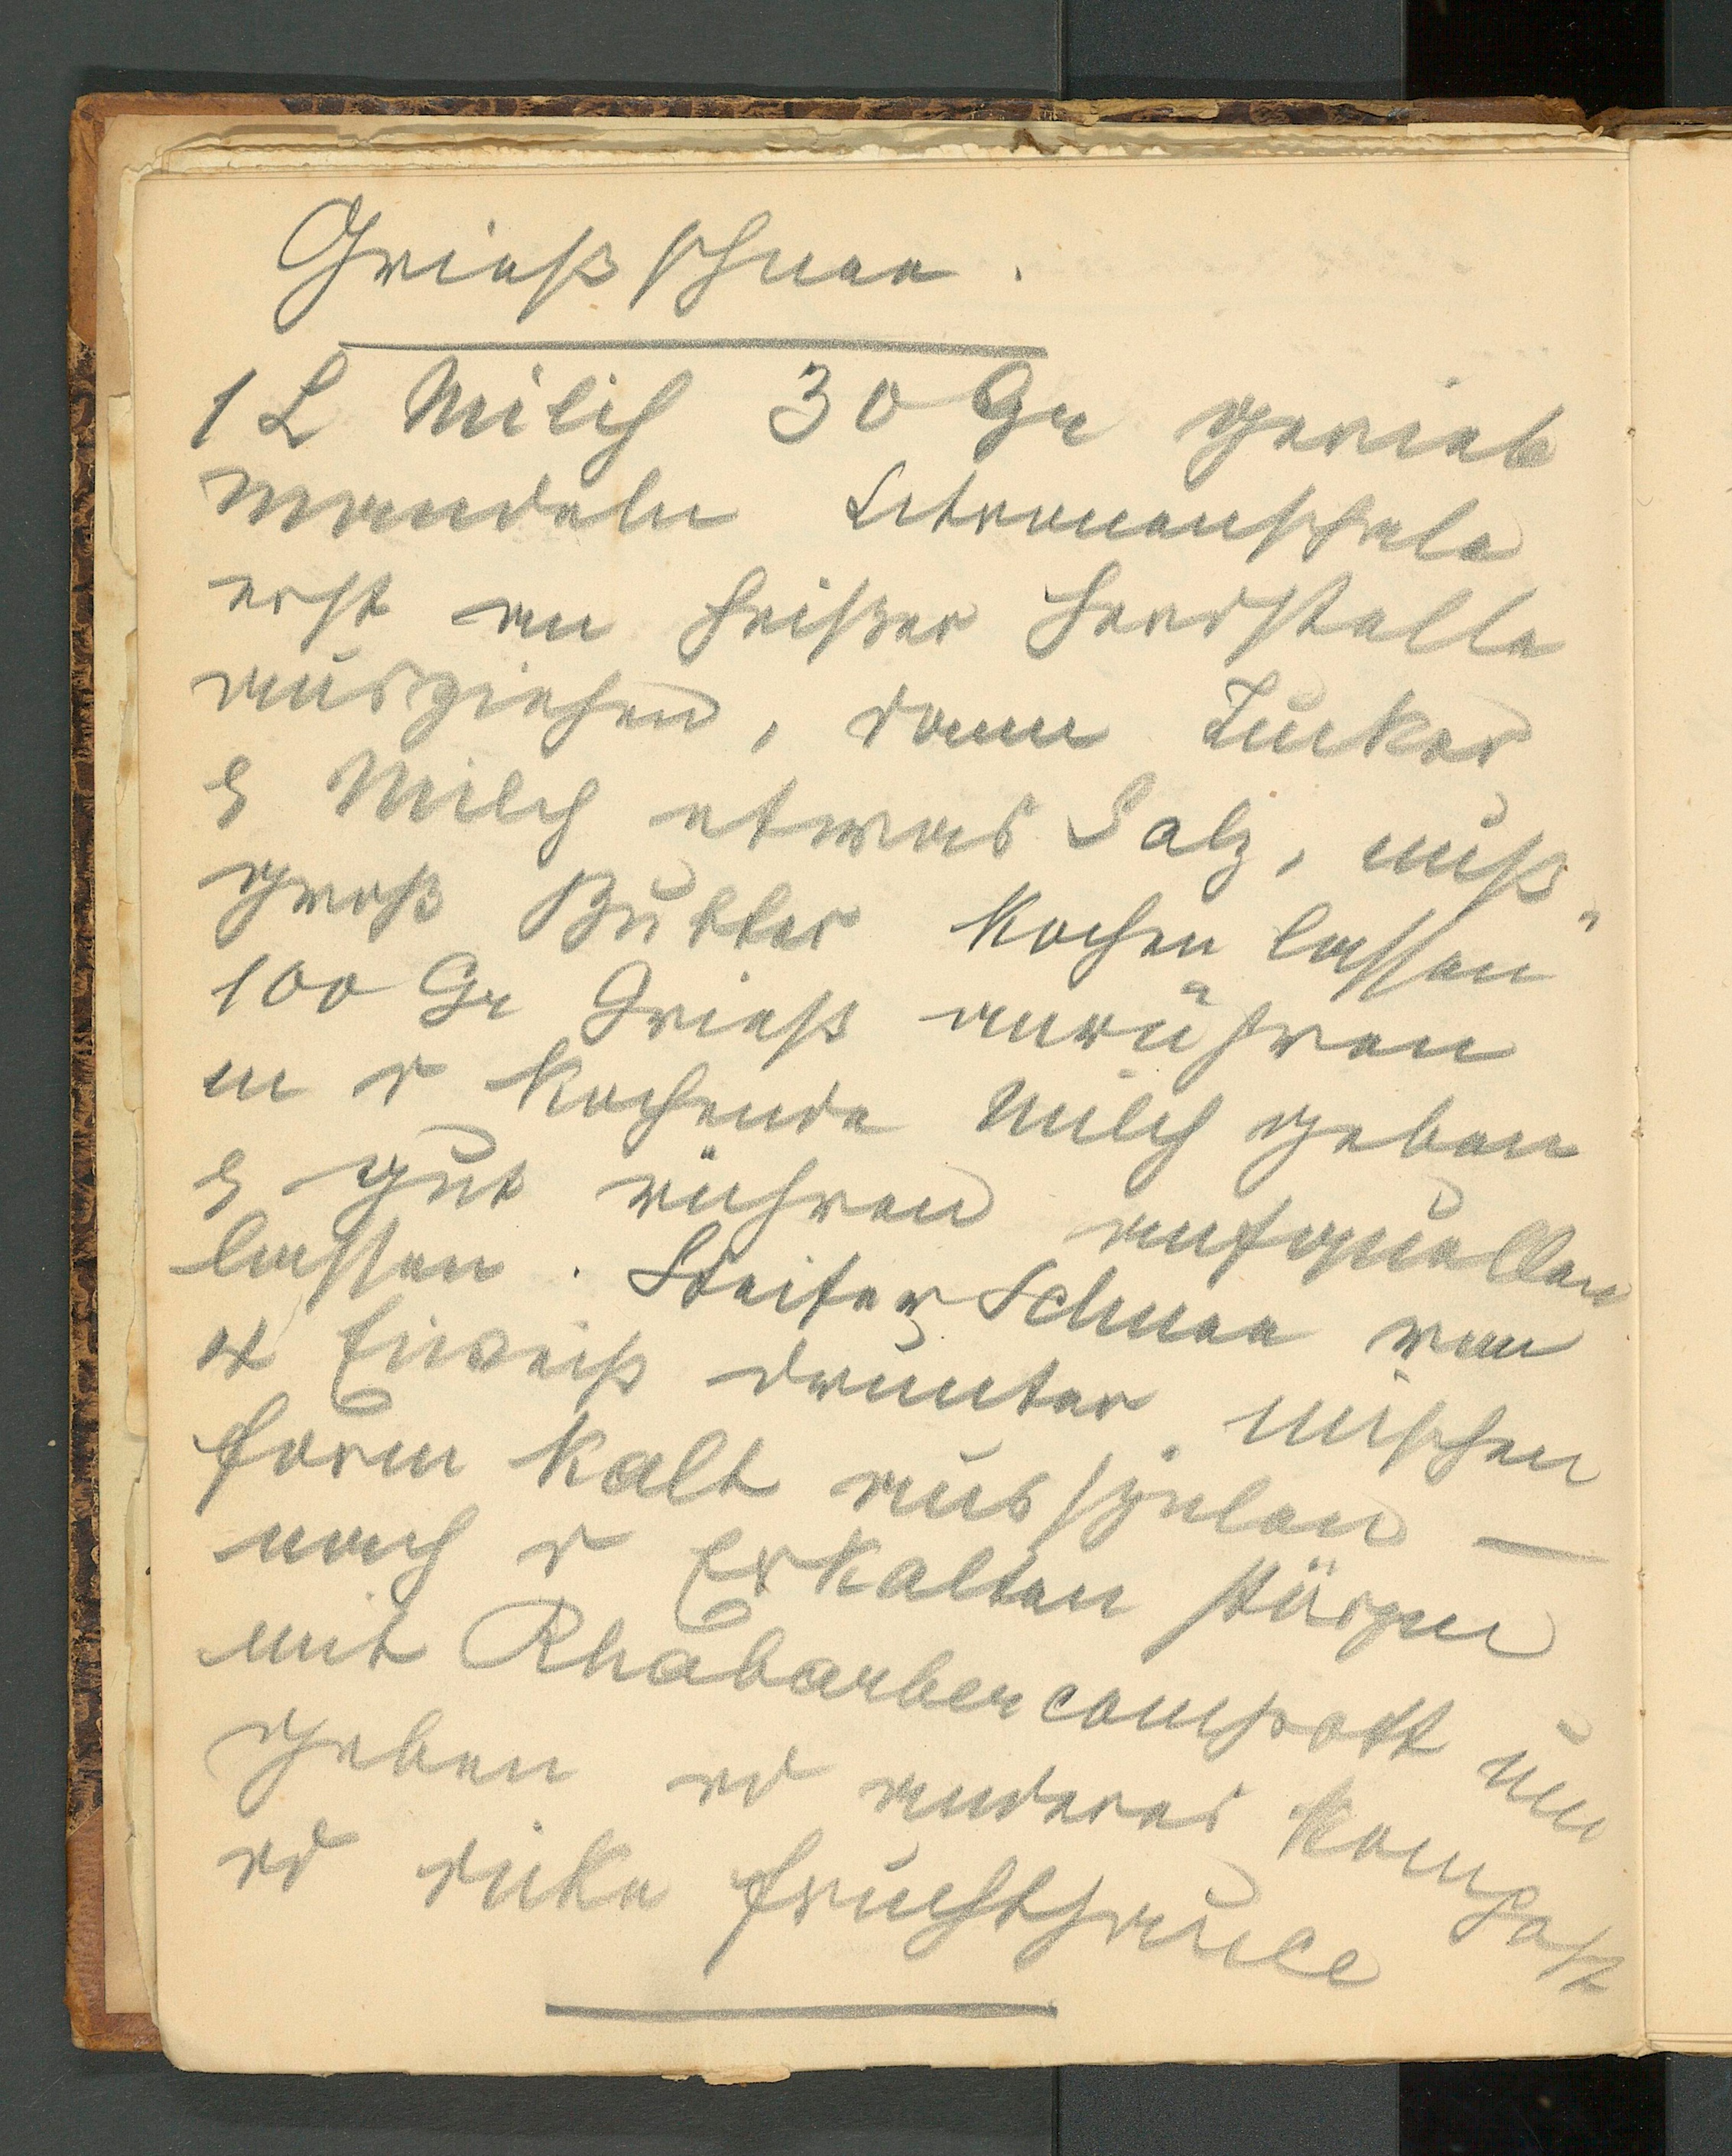 Grießschnee.
1 L Milch 30 Gr gerieb
Mandeln Citronenschale
erst an heißer Herdstelle
ausziehen, dann Zucker
& Milch etwas Salz, nuß-
groß Butter kochen lassen
100 Gr Grieß anrühren
in d kochende Milch geben
& gut rühren aufquellen
lassen. Steifer Schnee von
4 Eiweiß drunter mischen
Form kalt ausspülen —
nach d Erkalten stürzen
mit Rhabarbercompott um
geben od anderes Kompott
od dicke Fruchtsauce